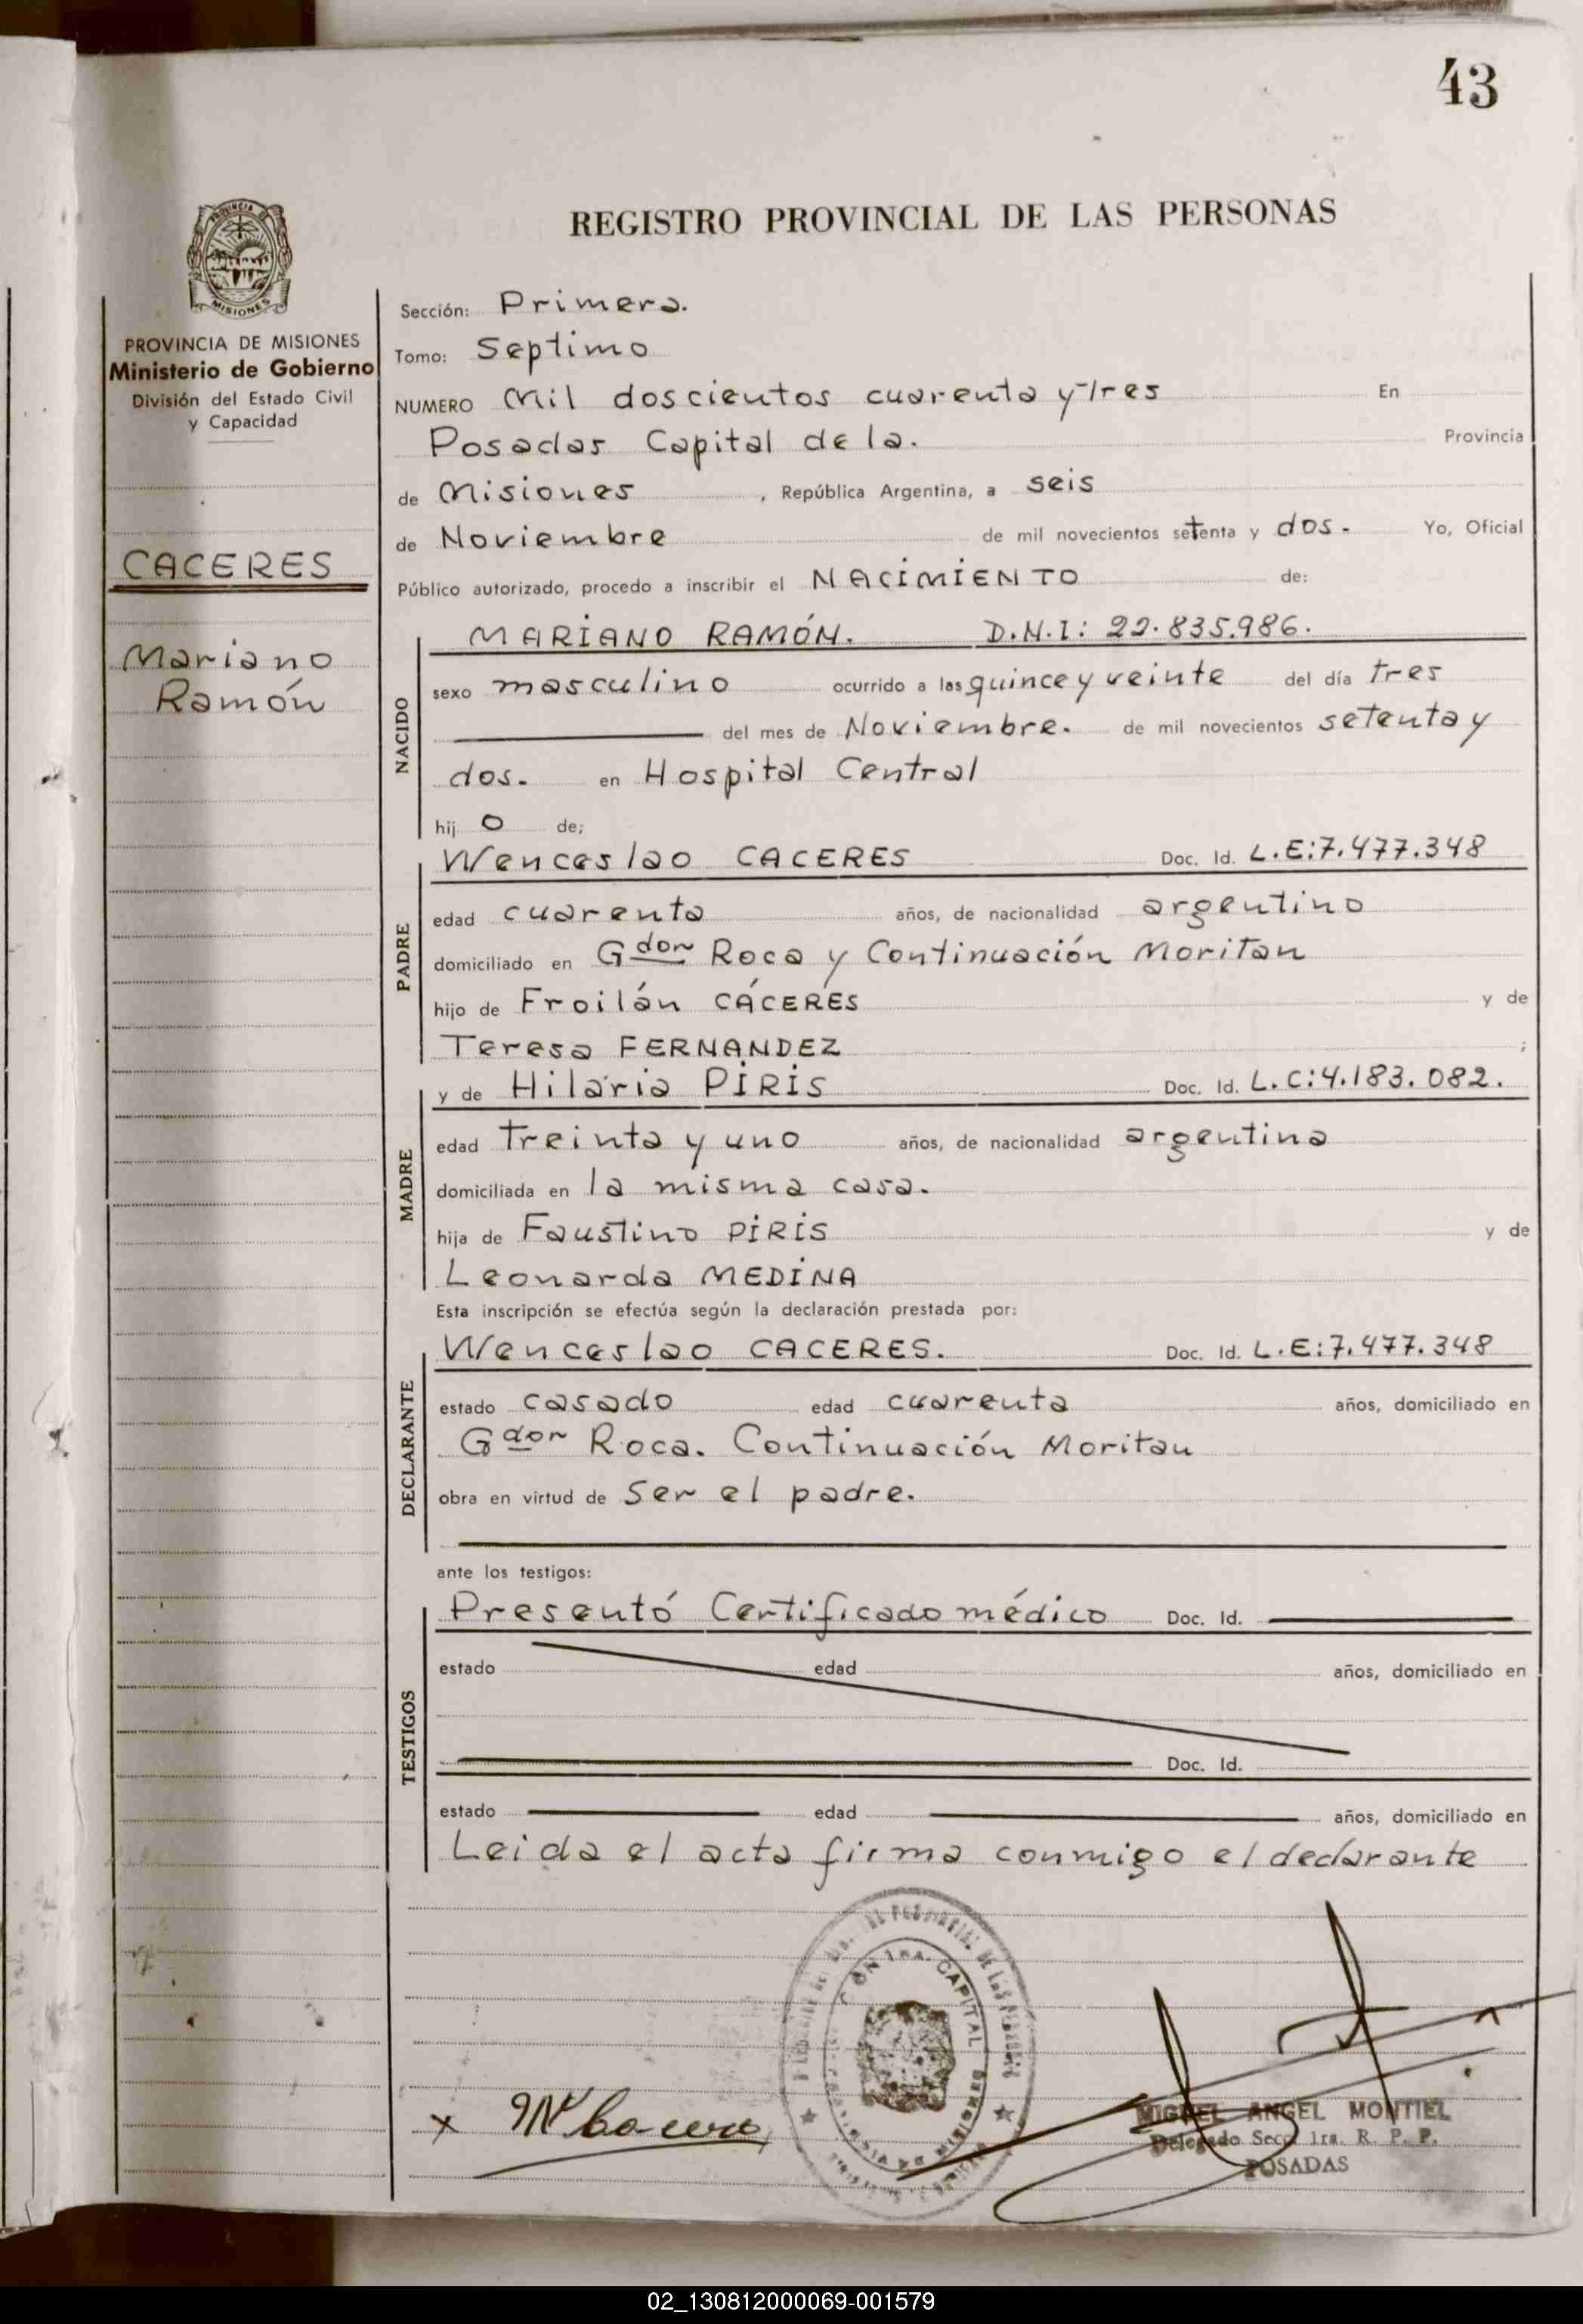 43
REGISTRO PROVINCIAL DE LAS PERSONAS
MISIONES
PROVINCIA DE MISIONES
Ministerio de Gobierno
División del Estado Civil
y Capacidad
CACERES
Mariano
Ramón
Sección: Primera.
Tomo: Septimo
NUMERO Mil doscientos cuarenta y tres En
Posadas Capital de la. Provincia
de Misiones , República Argentina, a seis
de Noviembre de mil novecientos setenta y dos. Yo, Oficial
Público autorizado, procedo a inscribir el NACIMIENTO de:
NACIDO
MARIANO RAMÓN. D.N.I: 22.835.986.
sexo masculino ocurrido a las quince y veinte del día tres
del mes de Noviembre. de mil novecientos setenta y
dos. en Hospital Central
hij o de;
PADRE
Wenceslao CACERES Doc. Id. L.E:7.477.348
edad cuarenta años, de nacionalidad argentino
domiciliado en Gdor Roca y Continuación Moritan
hijo de Froilán CÁCERES y de
Teresa FERNANDEZ ;
MADRE
y de Hilaria PIRIS Doc. Id. L.C:4.183.082.
edad treinta y uno años, de nacionalidad argentina
domiciliada en la misma casa.
hija de Faustino PIRIS y de
Leonarda MEDINA
Esta inscripción se efectúa según la declaración prestada por:
DECLARANTE
Wenceslao CACERES. Doc. Id. L.E:7.477.348
estado casado edad cuarenta años, domiciliado en
Gdor Roca. Continuación Moritan
obra en virtud de ser el padre.
ante los testigos:
TESTIGOS
Presentó Certificado médico Doc. Id.
estado edad años, domiciliado en
Doc. Id.
estado edad años, domiciliado en
Leida el acta firma conmigo el declarante
1RA. CAPITAL
MIGUEL ANGEL MONTIEL
Delegado Secc. 1ra. R. P. P.
POSADAS
02_130812000069-001579